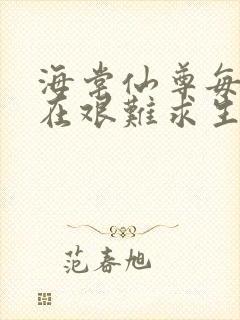 海棠仙尊每
在艰難求生
范春旭